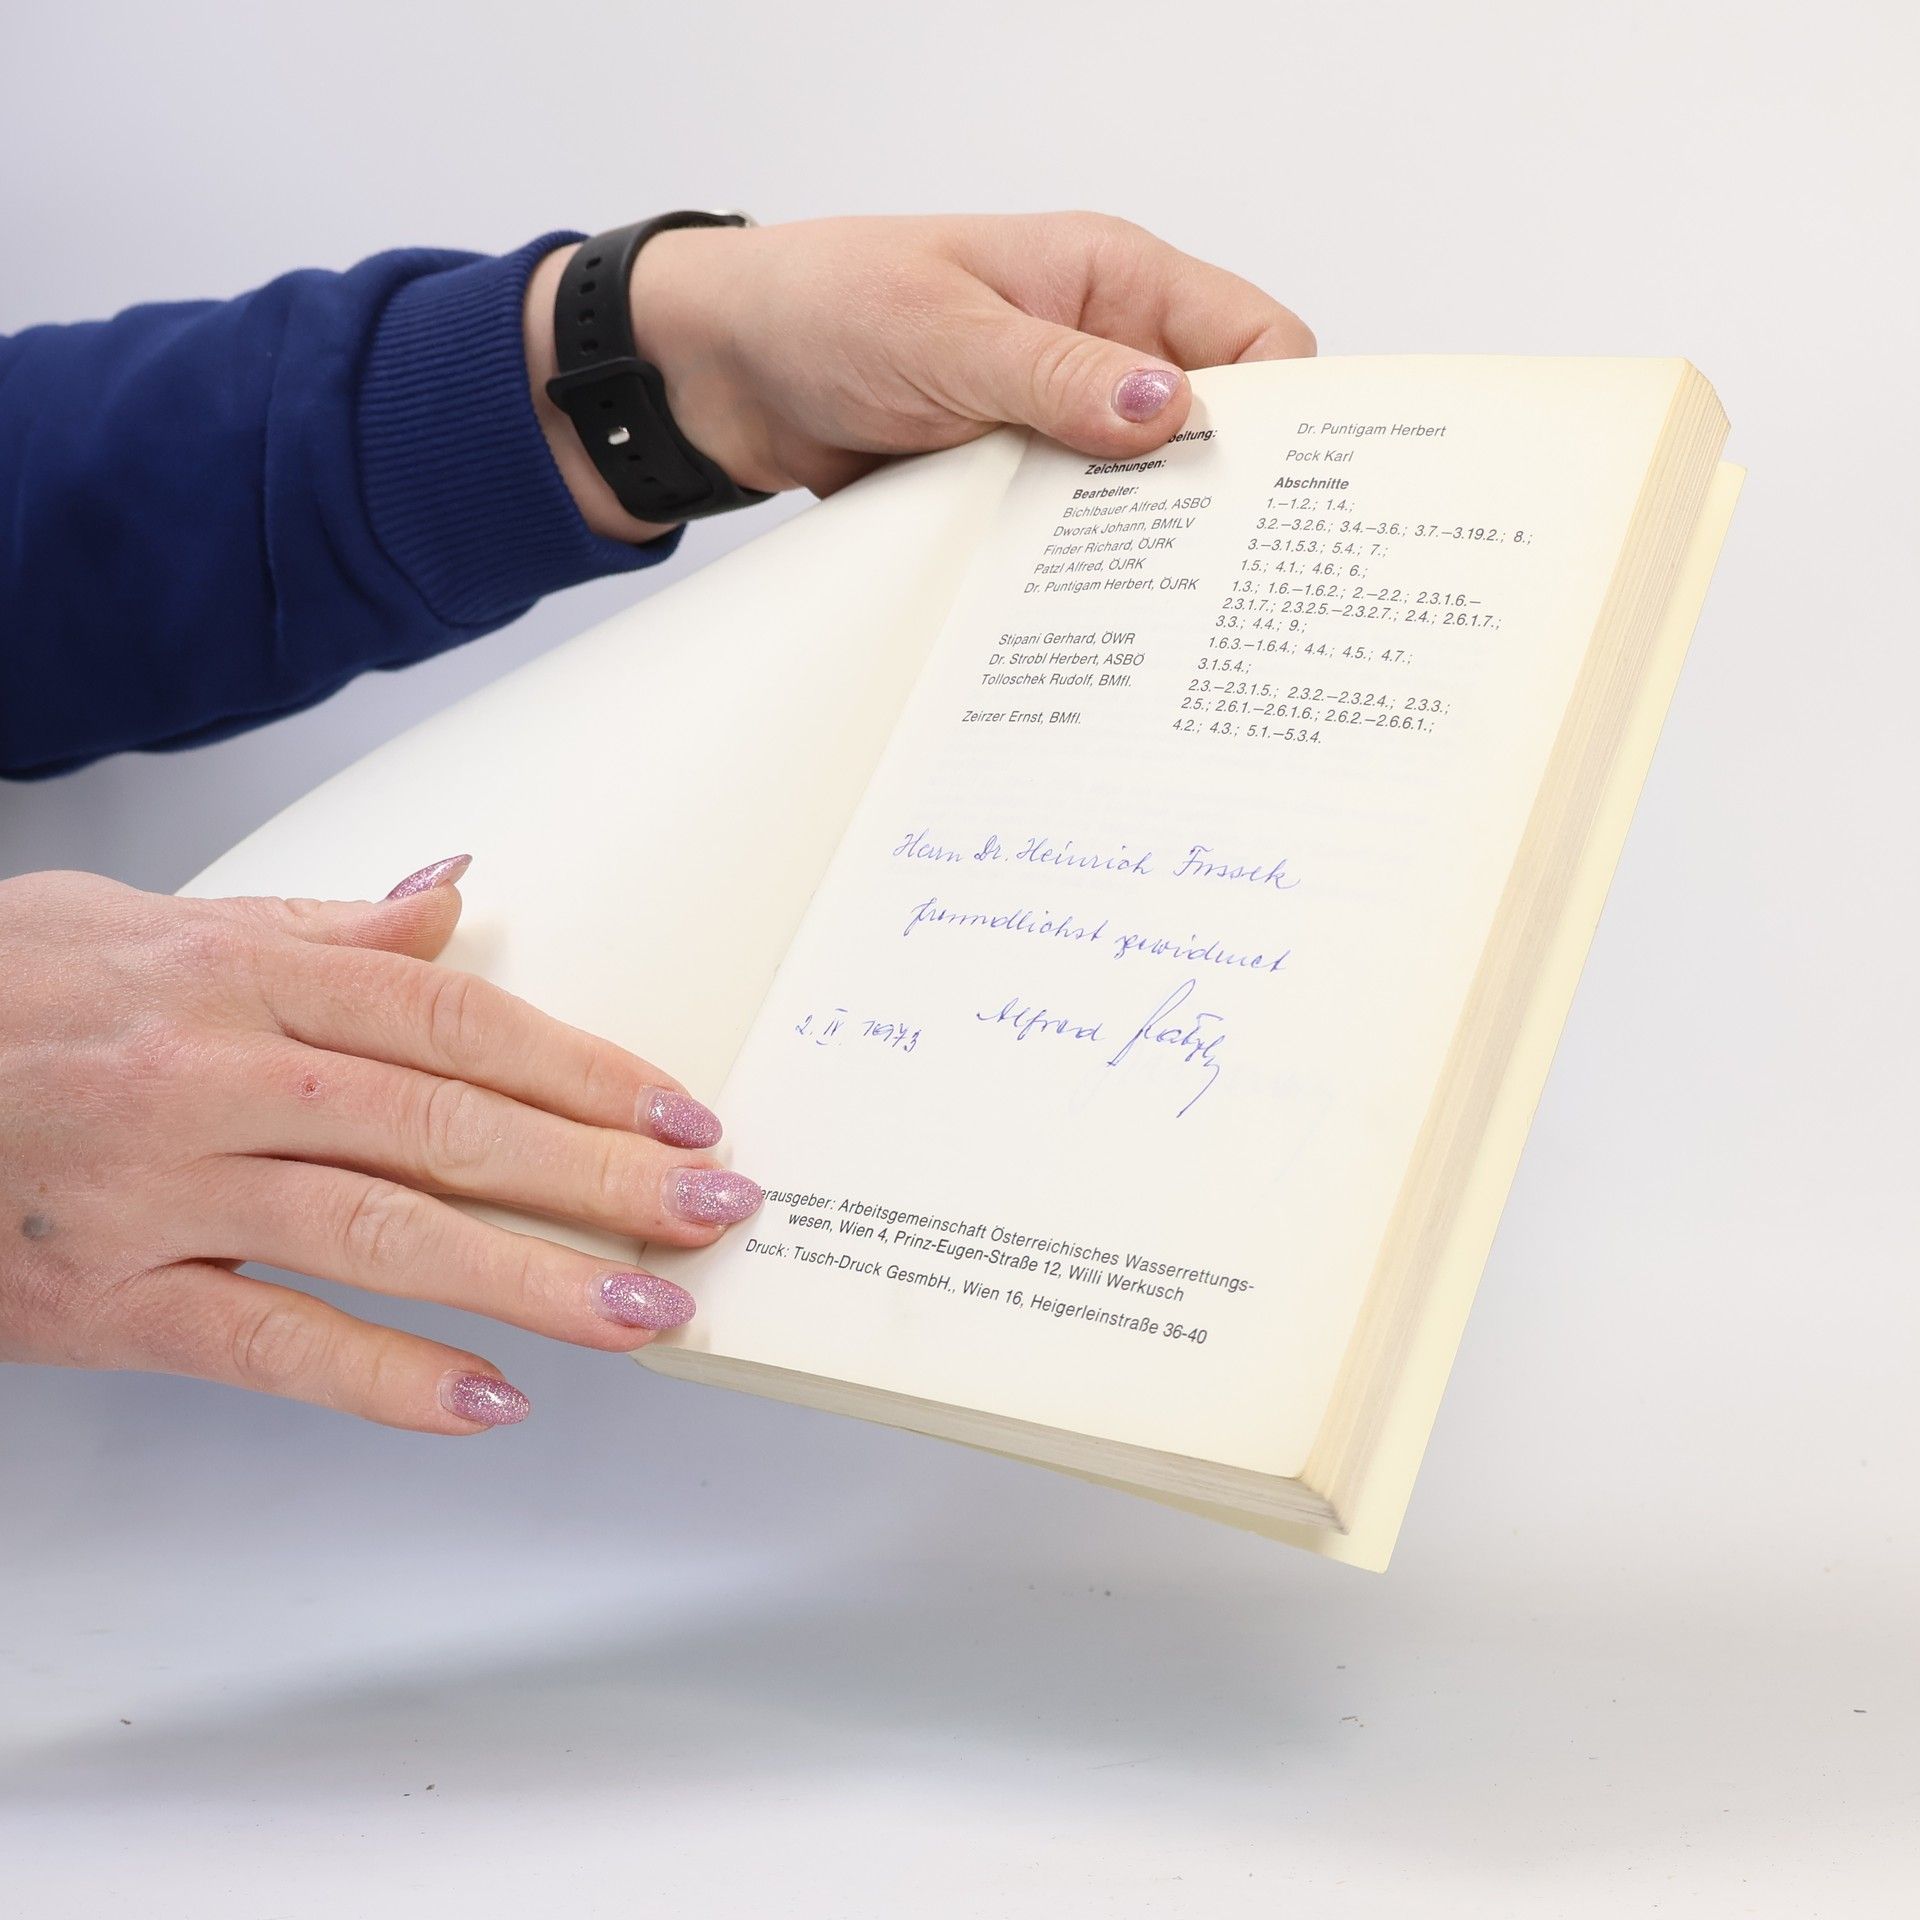 beitung: Dr. Puntigam Herbert
Zeichnungen: Pock Karl
Bearbeiter: Abschnitte
Bichlbauer Alfred, ASBÖ 1.—1.2.; 1.4.;
Dworak Johann, BMfLV 3.2.—3.2.6.; 3.4.—3.6.; 3.7.—3.19.2.; 8.;
Finder Richard, ÖJRK 3.—3.1.5.3.; 5.4.; 7.;
Patzl Alfred, ÖJRK 1.5.; 4.1.; 4.6.; 6.;
Dr. Puntigam Herbert, ÖJRK 1.3.; 1.6.—1.6.2.; 2.—2.2.; 2.3.1.6.—
2.3.1.7.; 2.3.2.5.—2.3.2.7.; 2.4.; 2.6.1.7.;
3.3.; 4.4.; 9.;
Stipani Gerhard, ÖWR 1.6.3.—1.6.4.; 4.4.; 4.5.; 4.7.;
Dr. Strobl Herbert, ASBÖ 3.1.5.4.;
Tolloschek Rudolf, BMfI. 2.3.—2.3.1.5.; 2.3.2.—2.3.2.4.; 2.3.3.;
2.5.; 2.6.1.—2.6.1.6.; 2.6.2.—2.6.6.1.;
Zeirzer Ernst, BMfI. 4.2.; 4.3.; 5.1.—5.3.4.
Herrn Dr. Heinrich
freundlichst gewidmet
2. IV. 1973 Alfred Patzl
erausgeber: Arbeitsgemeinschaft Österreichisches Wasserrettungs-
wesen, Wien 4, Prinz-Eugen-Straße 12, Willi Werkusch
Druck: Tusch-Druck GesmbH., Wien 16, Heigerleinstraße 36-40